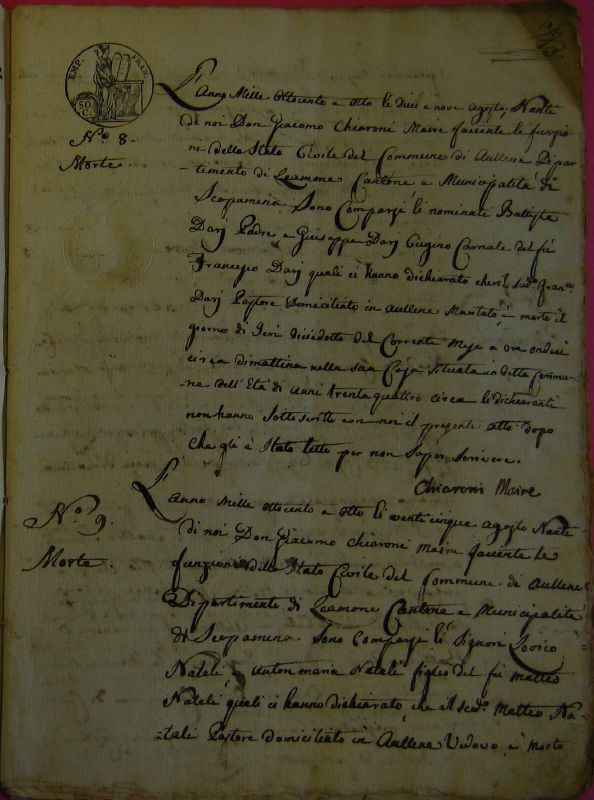 EMP. FRAN.
50 C.
N.º 8.
Morte.
L'Anno Mille ottocento e otto li dieci e nove Agosto, Nante
di noi Don Giacomo Chiaroni Maire facente le funzio
ni dello Stato Civile del Commune di Aullene Dipar-
timento di Leamone Cantone e Municipalità di
Scopamena. Sono Comparsi li nominati Battista
Darj Padre e Giuseppe Darj Cugino Carnale del fù
Francesco Darj quali ci hanno dichiarato che il sud.º Fran.co
Darj Pastore Domiciliato in Aullene Maritato è morto il
giorno di Jeri diciedotto del Corrente Mese a ore undeci
circa di mattina nella sua Casa Situata in detta Commu-
ne dell'Età di anni trenta quattro circa li dichiaranti
non hanno sottoscritto con noi il presente atto dopo
che gli è stato letto per non saper scrivere.
Chiaroni Maire
N.º 9.
Morte.
L'anno Mille ottocento e otto li vente cinque agosto Nante
di noi Don Giacomo Chiaroni Maire facente le
funzioni dello Stato Civile del Commune di Aullene
Dipartimento di Leamone Cantone e Municipalità
di Scopamena Sono Comparsi li Signori Lovico
Natali e Anton maria Natali figlio del fù Matteo
Natali quali ci hanno dichiarato che il sud.º Matteo Na-
tali Pastore domiciliato in Aullene Vedovo è Morto